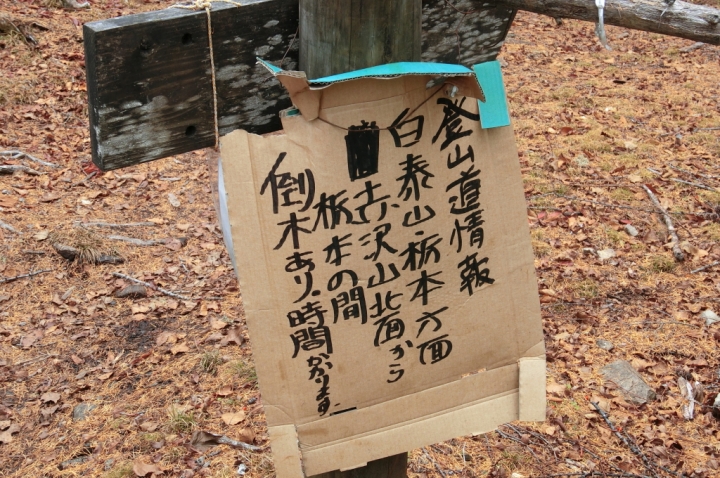 登山道情報
白泰山・栃本方面
赤沢山北面から
栃本の間
倒木あり、時間かかります。